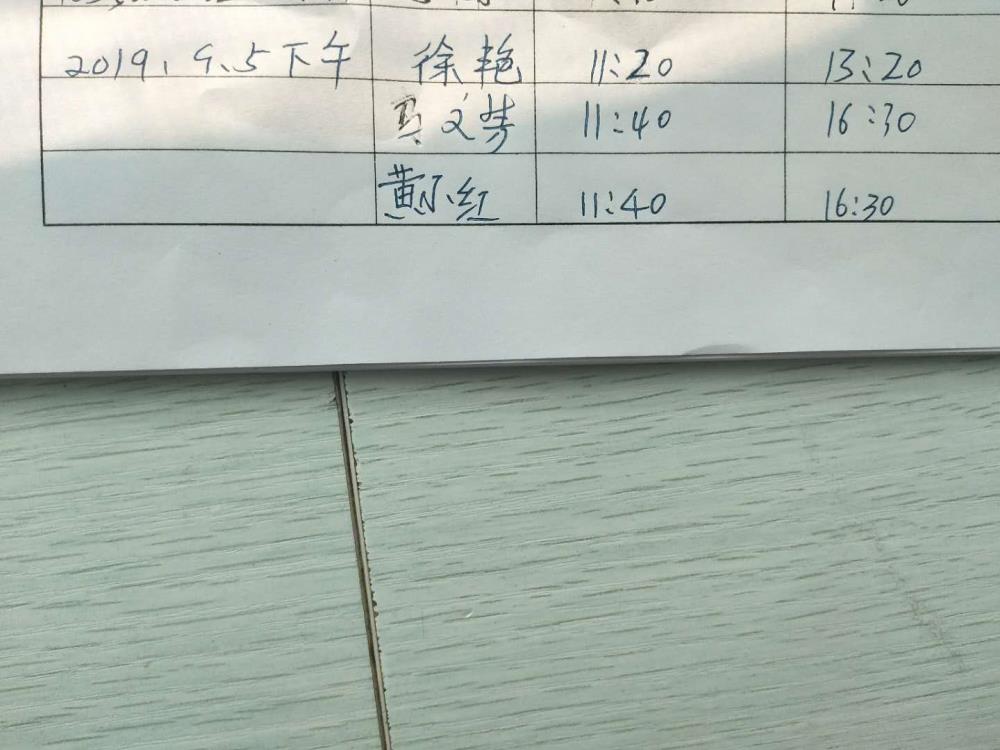 2019.9.5下午 徐艳 11:20 13:20
马文梦 11:40 16:30
黄小红 11:40 16:30